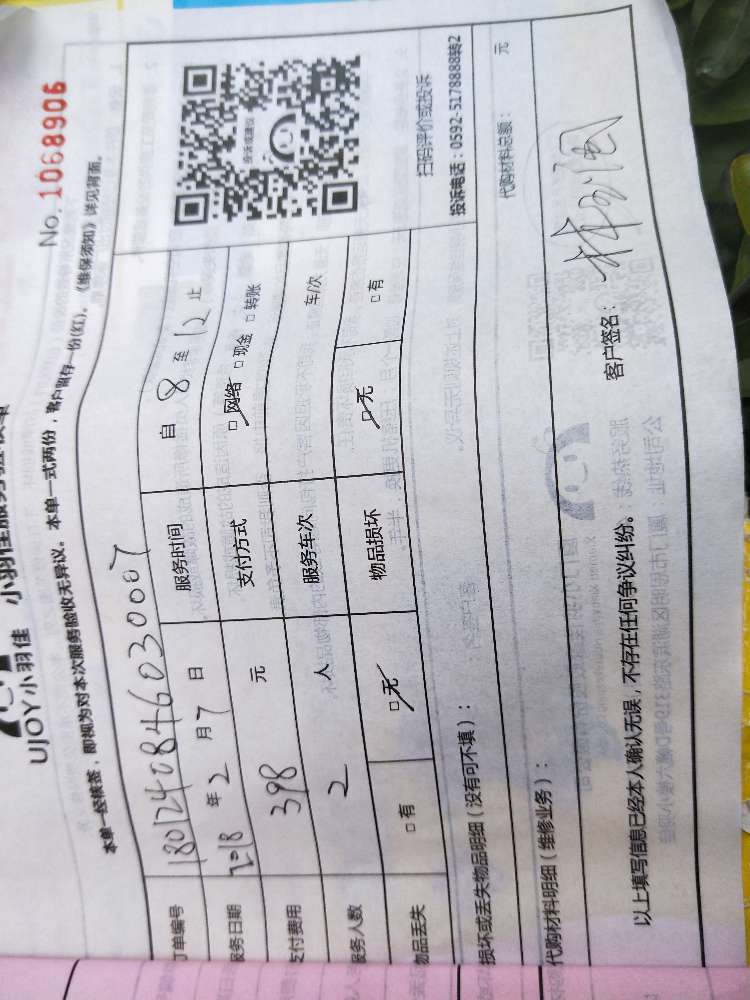 No. 1068906
UJOY小羽佳 小羽佳服务验收单
本单一经核签，即视为对本次服务验收无异议。本单一式两份，客户留存一份(红)。《维保须知》详见背面。
订单编号 180124084603000７
服务日期 2018 年 2 月 7 日 服务时间 自 8 至 12 止
支付费用 398 元 支付方式 □网络 □现金 □转账
服务人数 2 人 服务车次 车/次
物品丢失 □有 □无 物品损坏 □无 □有
投诉或建议
扫码评价或投诉
投诉电话：0592-5178888转2
损坏或丢失物品明细（没有可不填）：
代购材料明细（维修业务）： 代购材料总额： 元
以上填写信息已经本人确认无误，不存在任何争议纠纷。 客户签名：